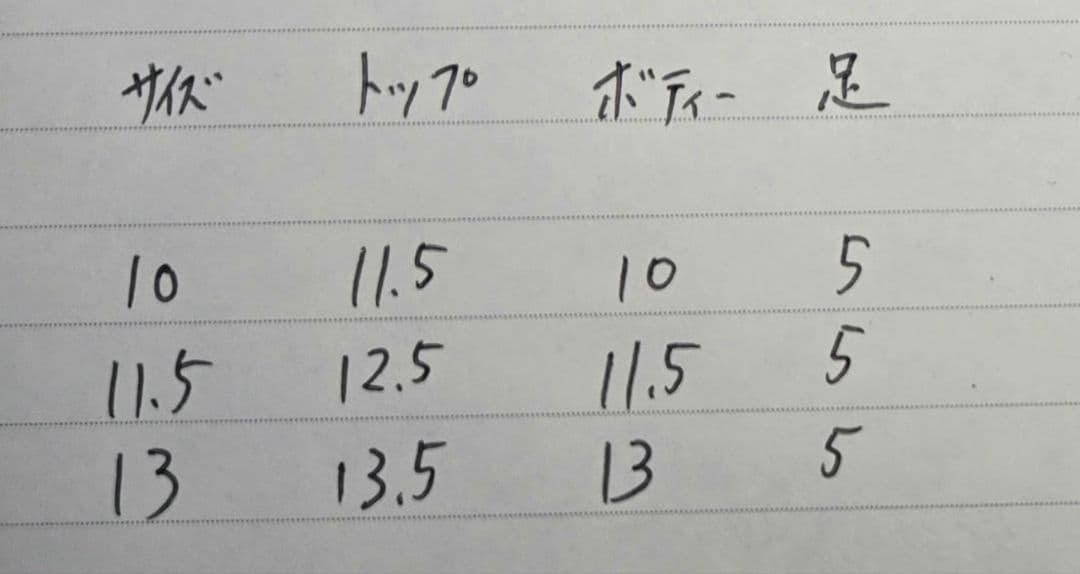 サイズ トップ ボディー 足
10 11.5 10 5
11.5 12.5 11.5 5
13 13.5 13 5